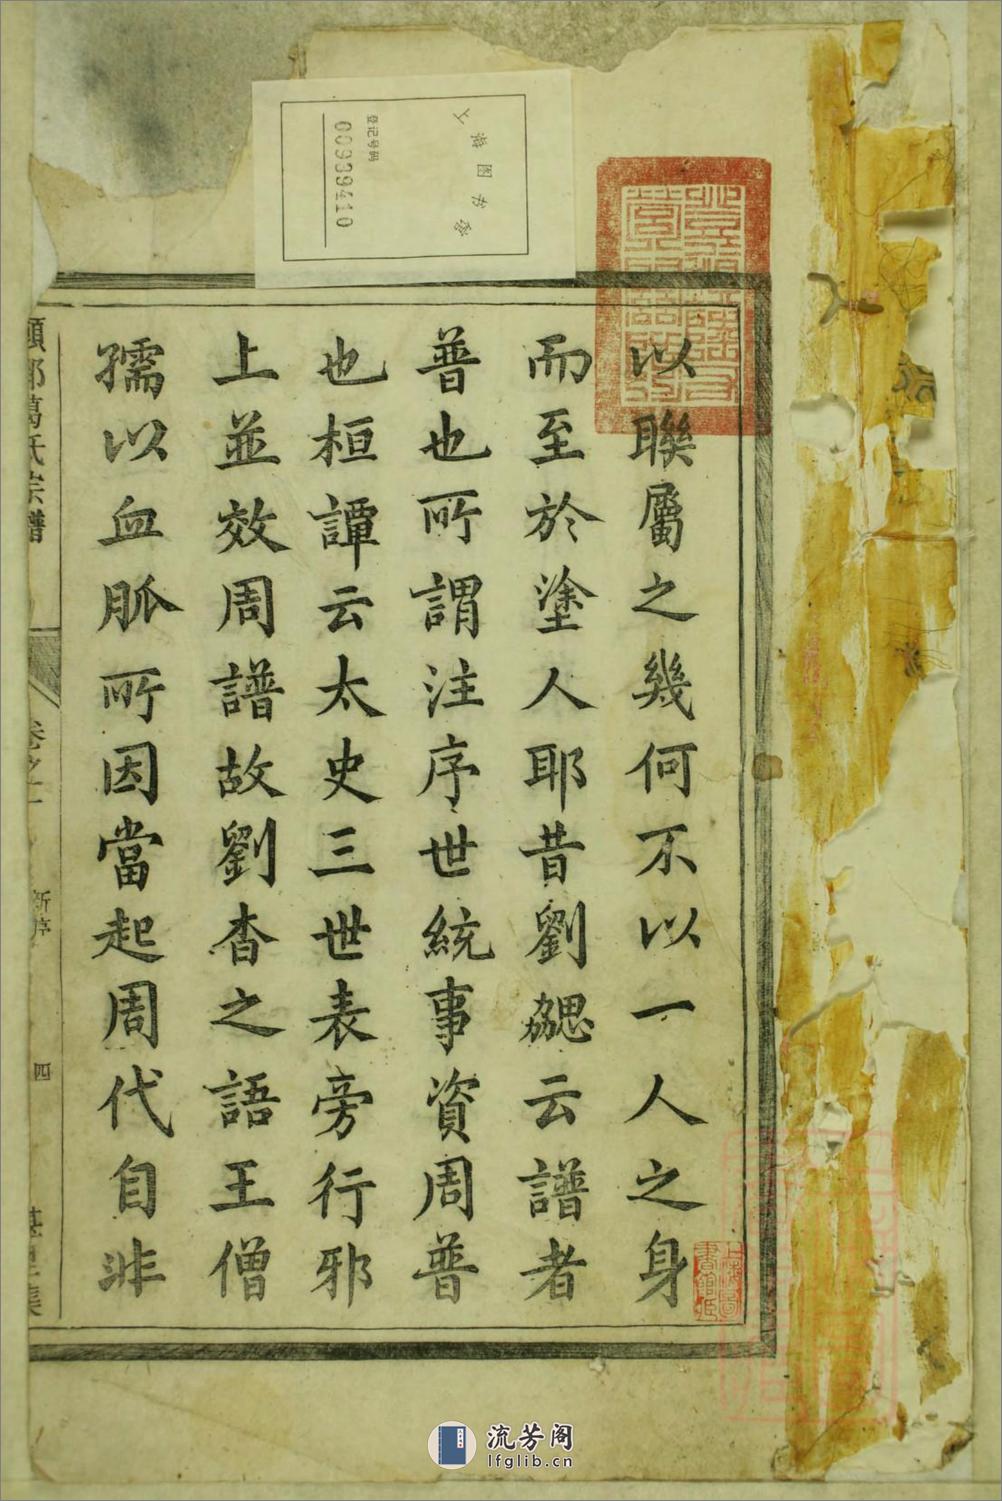 上海图书馆
登记号码
00999410
以聯屬之幾何不以一人之身
而至於塗人耶昔劉勰云譜者
普也所謂注序世統事資周普
也桓譚云太史三世表旁行邪
上並效周譜故劉杳之語王僧
孺以血脈所因當起周代自非
頓邱葛氏宗譜
卷之一
新序
四
流芳阁
lfglib.cn